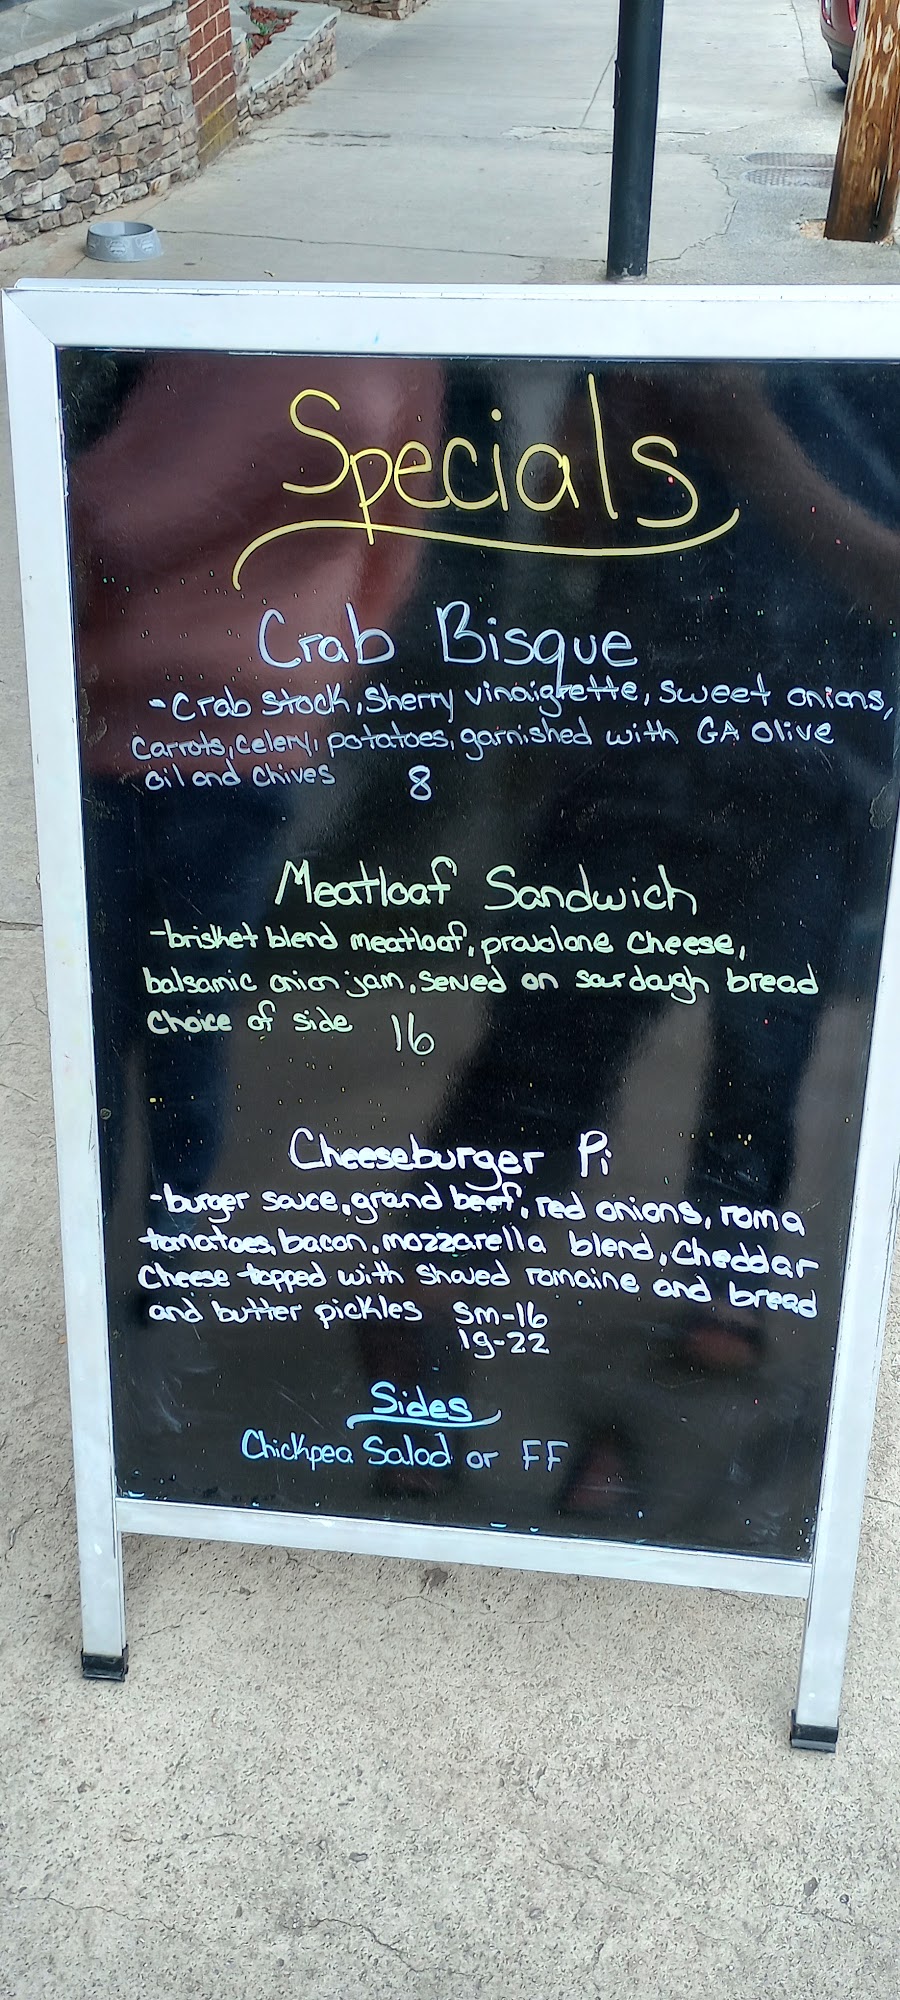 Specials
Crab Bisque
-Crab Stock, Sherry vinaigrette, sweet onions,
Carrots, celery, potatoes, garnished with GA Olive
oil and chives 8
Meatloaf Sandwich
-brisket blend meatloaf, provolone cheese,
balsamic onion jam, served on sourdough bread
Choice of side 16
Cheeseburger Pi
-burger sauce, grand beef, red onions, roma
tomatoes, bacon, mozzarella blend, Cheddar
Cheese topped with shaved romaine and bread
and butter pickles Sm-16
lg-22
Sides
Chickpea Salad or FF